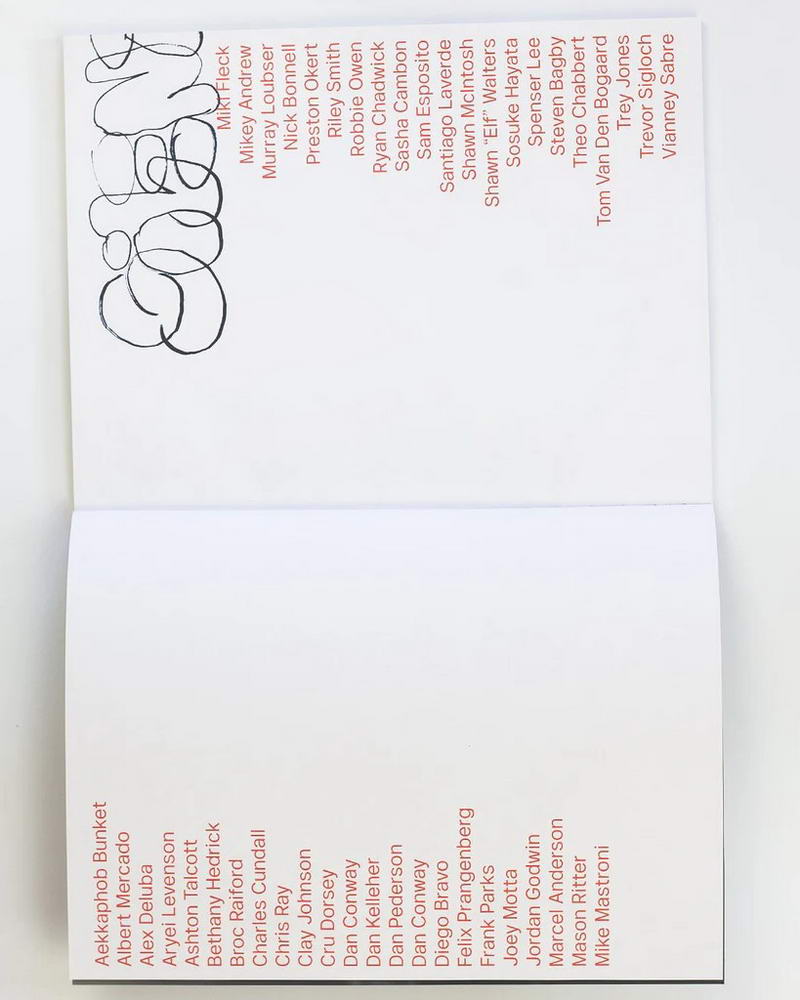 Aekkaphob Bunket
Albert Mercado
Alex Deluba
Aryei Levenson
Ashton Talcott
Bethany Hedrick
Broc Raiford
Charles Cundall
Chris Ray
Clay Johnson
Cru Dorsey
Dan Conway
Dan Kelleher
Dan Pederson
Dan Conway
Diego Bravo
Felix Prangenberg
Frank Parks
Joey Motta
Jordan Godwin
Marcel Anderson
Mason Ritter
Mike Mastroni
Miki Fleck
Mikey Andrew
Murray Loubser
Nick Bonnell
Preston Okert
Riley Smith
Robbie Owen
Ryan Chadwick
Sasha Cambon
Sam Esposito
Santiago Laverde
Shawn McIntosh
Shawn “Elf” Walters
Sosuke Hayata
Spenser Lee
Steven Bagby
Theo Chabbert
Tom Van Den Bogaard
Trey Jones
Trevor Sigloch
Vianney Sabre